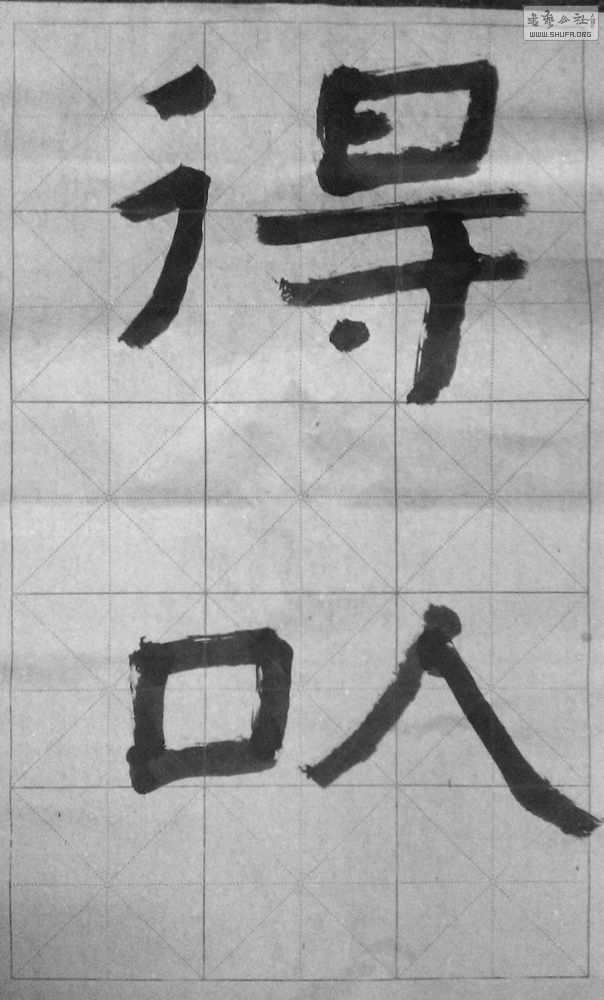 書藝公社
WWW.SHUFA.ORG
得
叺